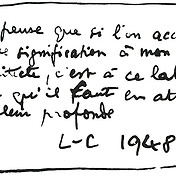 pense que si l'on acc
e signification à mon
itecte, c'est à ce lab
qu'il faut en at
leur profonde
L-C 1948